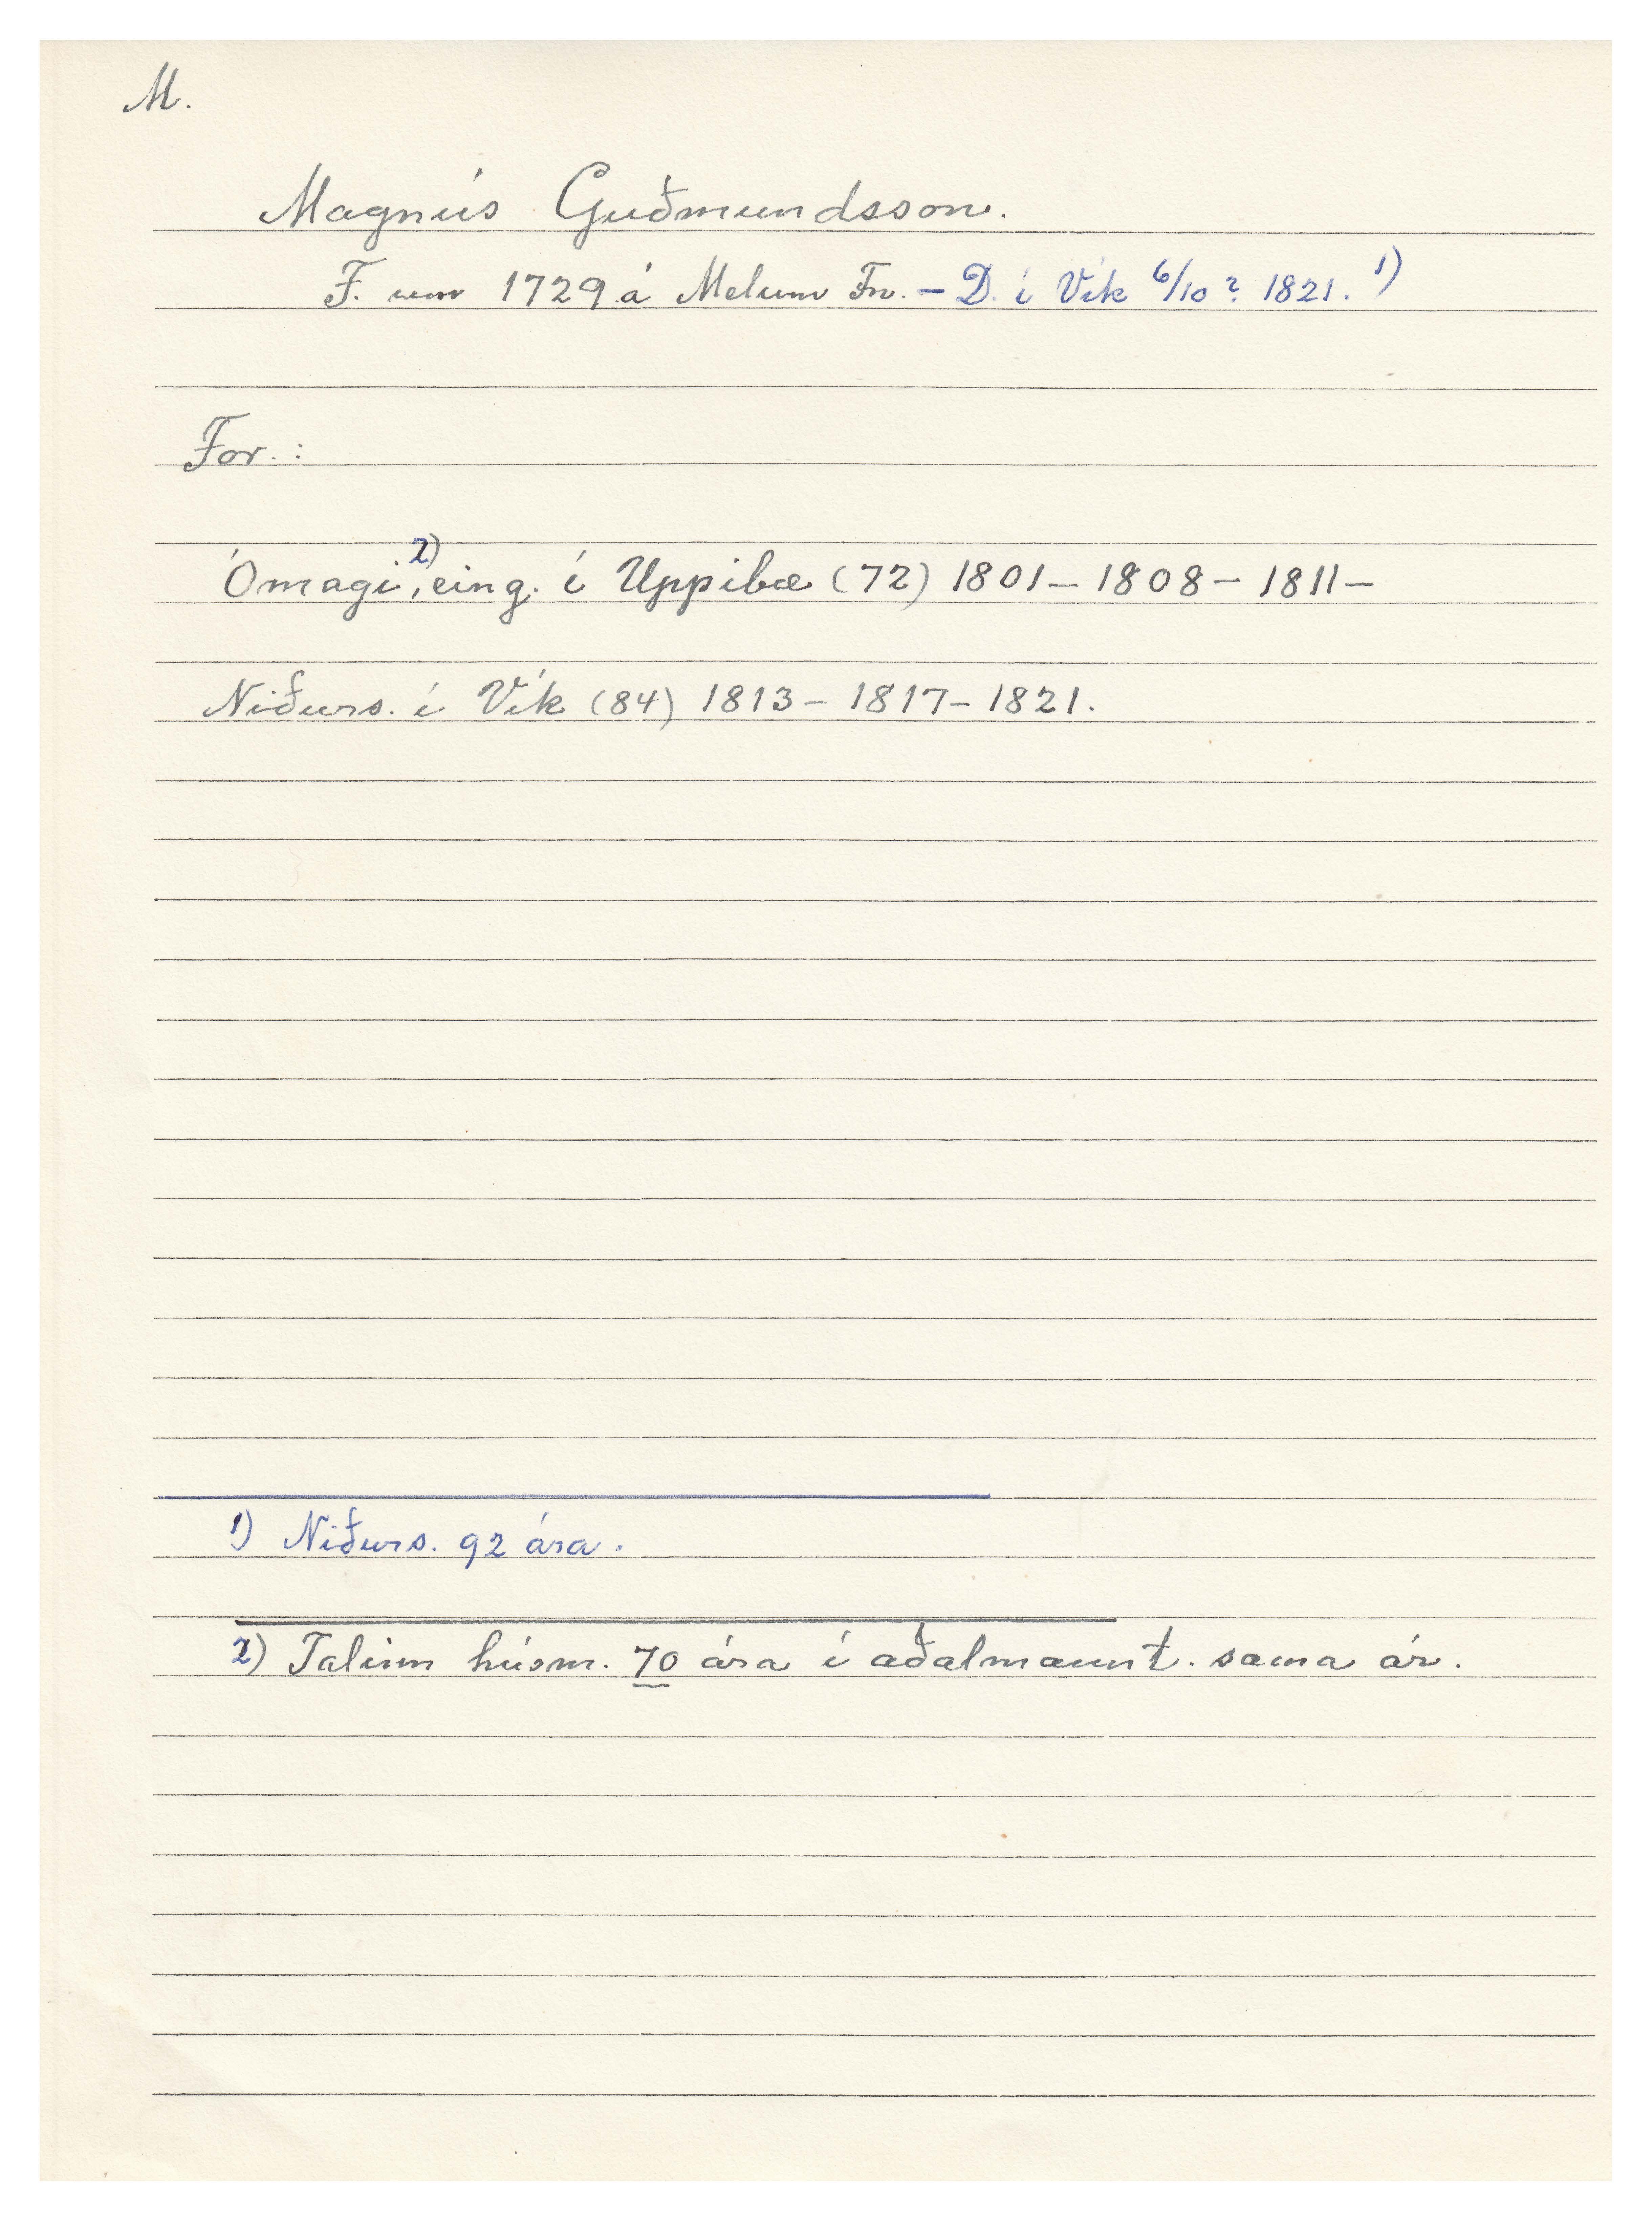 M.
Magnús Guðmundsson.
F. um 1729 á Melum Fn. - D. í Vík 6/10 ? 1821. 1)
For. :
Ómagi 2), eing. í Uppibæ (72) 1801 - 1808 - 1811 -
Niðurs. í Vík (84) 1813 - 1817 - 1821.
1) Niðurs. 92 ára.
2) Talinn húsm. 70 ára í aðalmannt. sama ár.